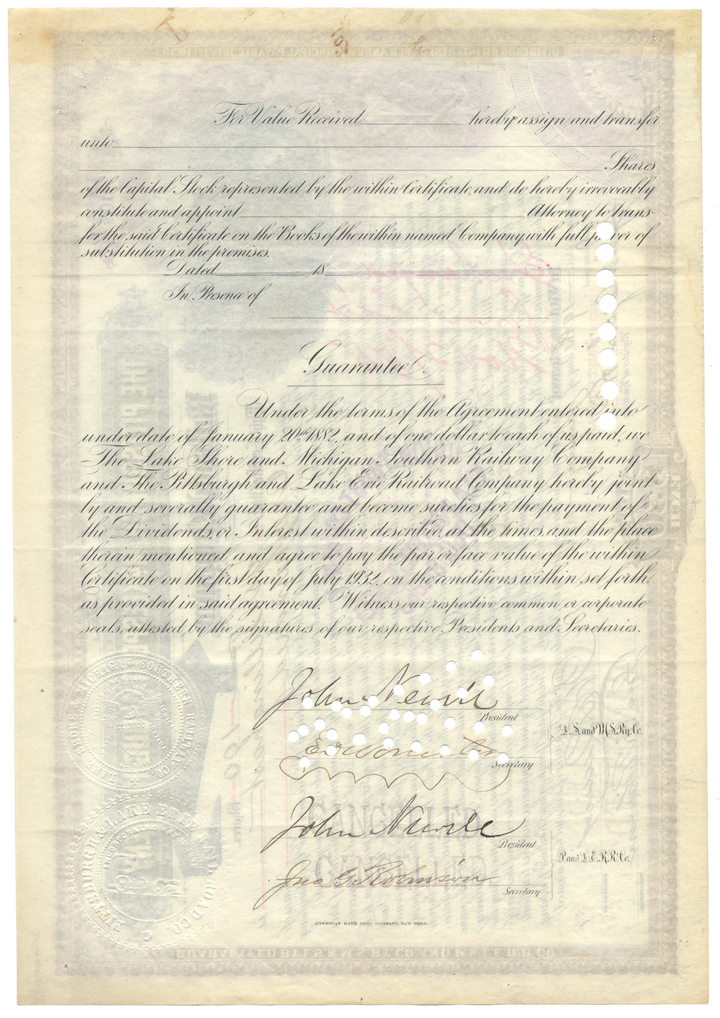 For Value Received hereby assign and transfer
unto
Shares
of the Capital Stock represented by the within Certificate, and do hereby irrevocably
constitute and appoint Attorney to trans-
fer the said Certificate on the Books of the within named Company, with full power of
substitution in the premises.
Dated 18
In Presence of
Guarantee.
Under the terms of the Agreement entered into
under date of January 20th 1882, and of one dollar to each of us paid, we
The Lake Shore and Michigan Southern Railway Company
and The Pittsburgh and Lake Erie Railroad Company hereby joint-
ly and severally guarantee and become sureties for the payment of
the Dividends, or Interest within described, at the times, and the place
therein mentioned, and agree to pay the par or face value of the within
Certificate on the first day of July 1932, on the conditions within set forth,
as provided in said agreement. Witness our respective common or corporate
seals, attested by the signatures of our respective Presidents and Secretaries.
John Newell
President
L. S. and M. S. Ry. Co.
Secretary
John Newell
President
P. and L. E. R. R. Co.
Jno G. Robinson
Secretary
CANCELLED
PITTSBURGH & LAKE ERIE RAILROAD CO.
AMERICAN BANK NOTE COMPANY, NEW YORK.